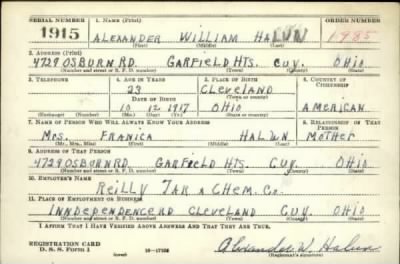 SERIAL NUMBER 1. NAME (Print) ORDER NUMBER
1915 ALEXANDER WILLIAM HALUN 1985
(First) (Middle) (Last)
2. ADDRESS (Print)
4729 OSBURN RD. GARFIELD HTS. CUY. OHIO
(Number and street or R. F. D. number) (Town) (County) (State)
3. TELEPHONE 4. AGE IN YEARS 5. PLACE OF BIRTH 6. COUNTRY OF CITIZENSHIP
23 CLEVELAND
DATE OF BIRTH (Town or county)
10 12 1917 OHIO AMERICAN
(Exchange) (Number) (Mo.) (Day) (Yr.) (State or country)
7. NAME OF PERSON WHO WILL ALWAYS KNOW YOUR ADDRESS 8. RELATIONSHIP OF THAT PERSON
MRS. FRANICA HALUN MOTHER
(Mr., Mrs., Miss) (First) (Middle) (Last)
9. ADDRESS OF THAT PERSON
4729 OSBURN RD. GARFIELD HTS. CUY. OHIO
(Number and street or R. F. D. number) (Town) (County) (State)
10. EMPLOYER'S NAME
REILLY TAR & CHEM. CO.
11. PLACE OF EMPLOYMENT OR BUSINESS
INNDEPENDENCE RD CLEVELAND CUY. OHIO
(Number and street or R. F. D. number) (Town) (County) (State)
I AFFIRM THAT I HAVE VERIFIED ABOVE ANSWERS AND THAT THEY ARE TRUE.
REGISTRATION CARD
D. S. S. Form 1 16-17105 Alexander W. Halun
(over) (Registrant's signature)